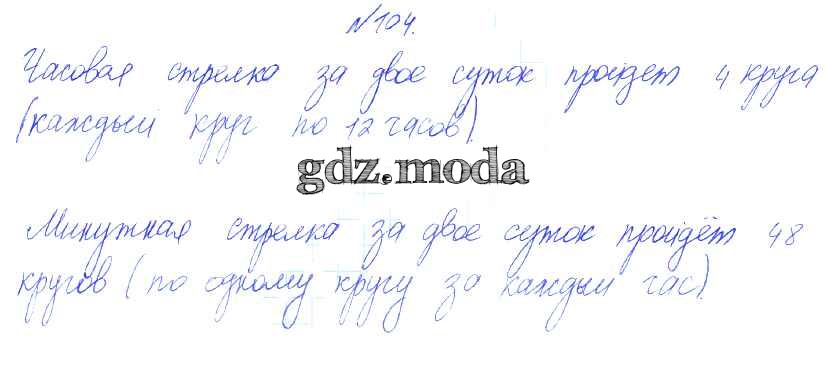 №104.
Часовая стрелка за двое суток пройдет 4 круга
(каждый круг по 12 часов).
gdz.moda
Минутная стрелка за двое суток пройдёт 48
кругов (по одному кругу за каждый час).